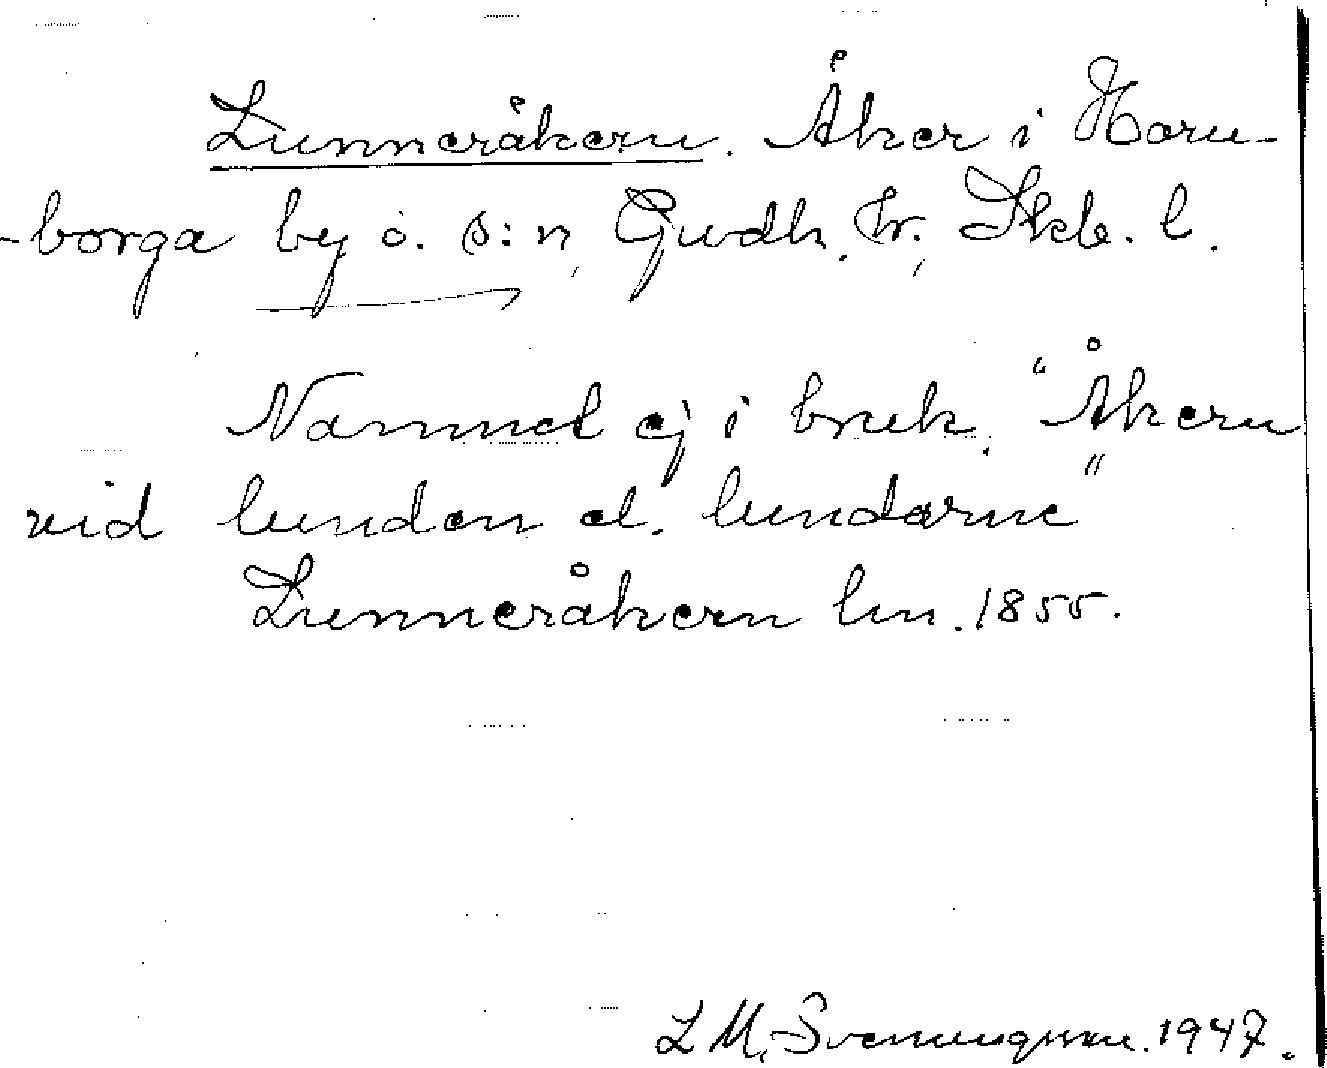 Lunneråkern. Åker i Horn-
-borga by o. s:n, Gudh. hr., Skb. l.
Namnet ej i bruk. "Åkern
vid lunden el. lundarne"
Lunneråkern lm. 1855.
L M, Svenungsson. 1947.